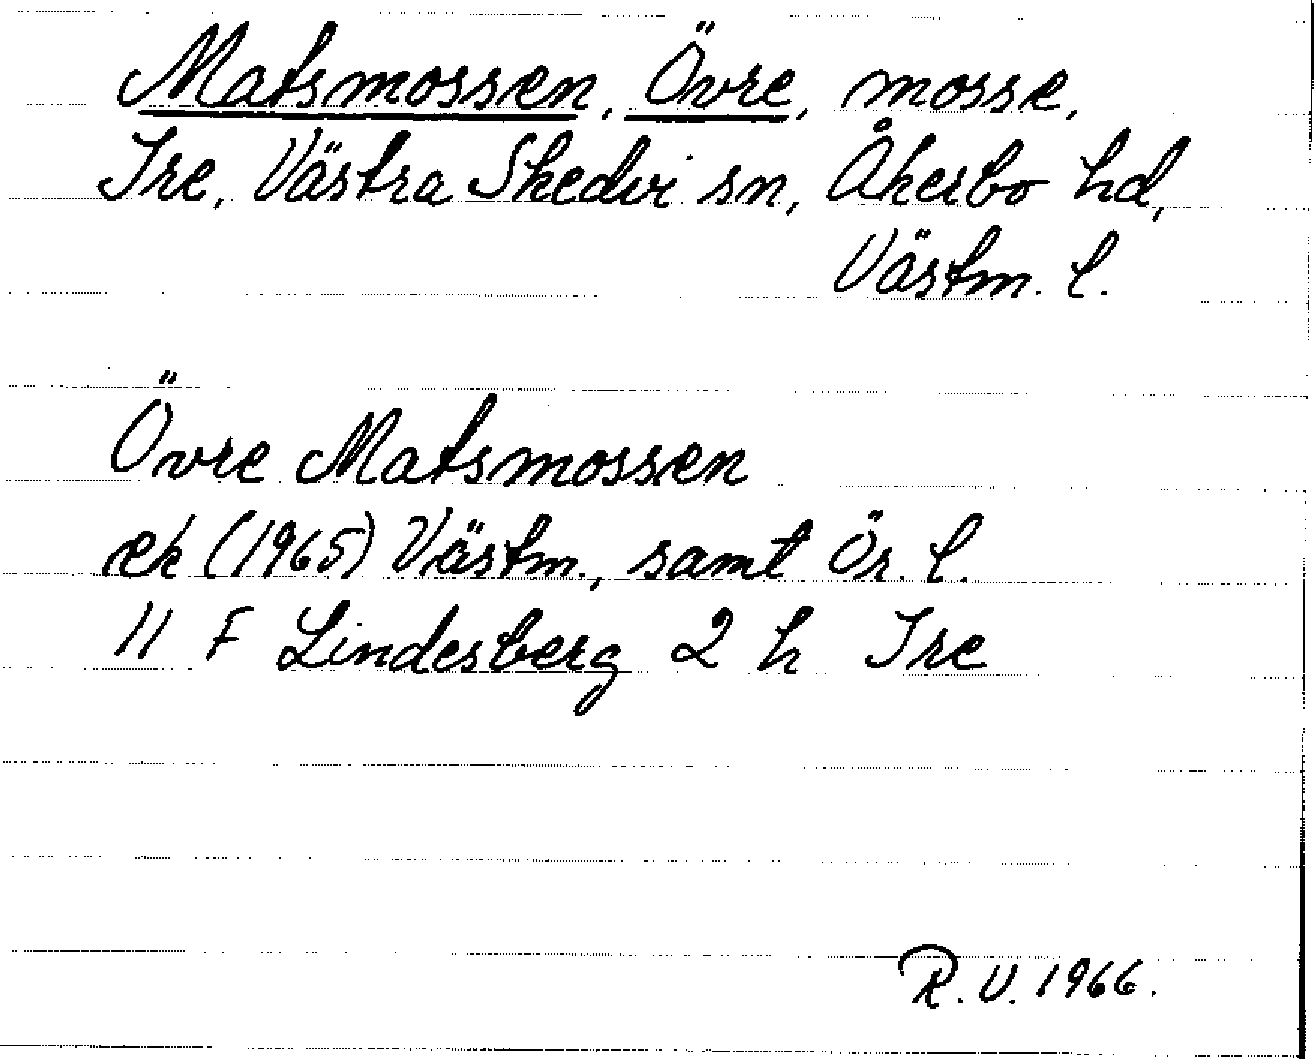 Matsmossen, Övre, mosse,
Ire, Västra Skedvi sn, Åkerbo hd,
Västm. l.
Övre Matsmossen
ek (1965) Västm., samt Ör. l.
11 F Lindesberg 2 h Ire
R.V. 1966.